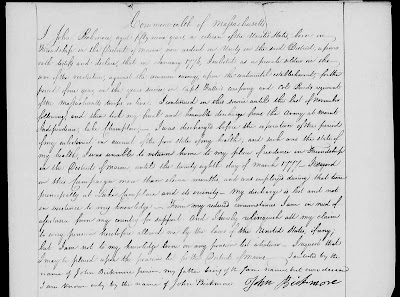 Commonwealth of Massachusetts
I John Bickmore aged fifty nine years a citizen of the United States, born in
Friendship in the District of Maine now resident in in the said District, upon
oath testify and declare, that in January 1776, I enlisted, as a private soldier in the
war of the revolution, against the common enemy, upon the continental establishment, for the
period of one year in the years service in Capt company and Col regiment
of the Massachusetts troops in line. I continued in this service until the last of November
following, and then took my and honorable discharge from the Army at mount
Independence, lake Champlain. I was discharged before the expiration of the period
of my enlistment on account of the poor state of my health, and such was the state of
my health, I was unable to return home to my place of residence in Friendship
in the District of Maine until the twenty eighth day of March 1777. I served
in this Campaign more than eleven months, and was employed during that time
principally at Lake Champlain and its vicinity. My discharge is lost and not
in existence to my knowledge. From my reduced circumstances I am in need of
assistance from my country for support. And I hereby relinquish all my claim
to every pension heretofore allowed me by the laws of the United States, if any,
but I am not to my knowledge borne on any pension list whatever. I request that
I may be placed upon the pension list for the District of Maine. I enlisted by the
name of John Bickmore Junior, my father being of the same name but now deceased
I am known only by the name of John Bickmore. John Bickmore